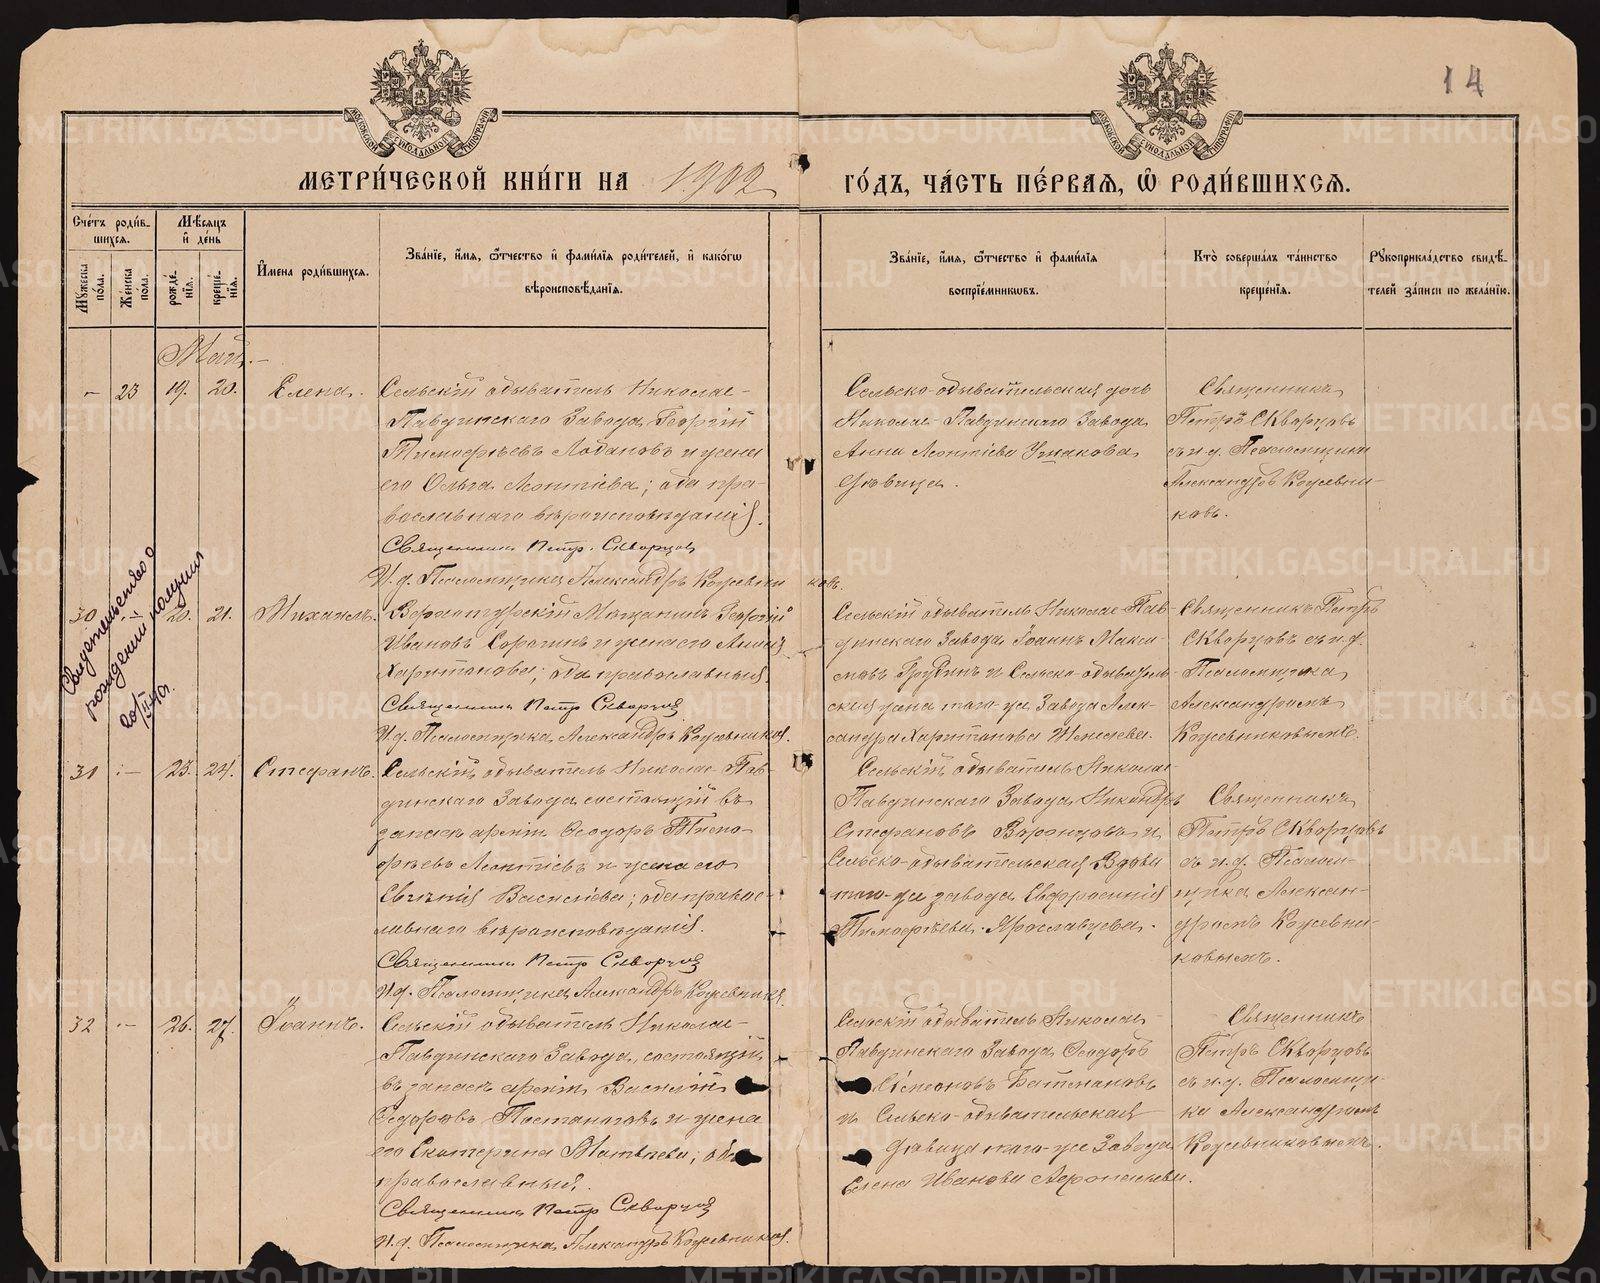 14
МОСКОВСКОЙ СѴНОДАЛЬНОЙ ТИПОГРАФІИ
МОСКОВСКОЙ СѴНОДАЛЬНОЙ ТИПОГРАФІИ
МЕТРИ́ЧЕСКОЙ КНИ́ГИ НА 1902 ГО́ДЪ, ЧА́СТЬ ПЕ́РВАЯ, Ѡ РОДИ́ВШИХСЯ.
Сче́тъ роди́в-
шихся.
Мꙋжеска по́ла.
Же́нска по́ла.
Мѣ́сяцъ
и де́нь
рожде́-
нія.
креще́-
нія.
И́мена роди́вшихся.
Зва́ніе, и́мя, ѻ́тчество и фами́лія роди́телей, и како́гѡ
вѣроисповѣ́данія.
Зва́ніе, и́мя, ѻ́тчество и фами́лія
воспріе́мникѡвъ.
Кто̀ соверша́лъ та́инство
креще́нія.
Рꙋкоприкла́дство свидѣ́-
телей за́писи по жела́нію.
Май.-
- 23 19. 20. Елена.
Сельскій обыватель Николае-
Павдинскаго Завода Георгій
Тимофѣевъ Лобановъ и жена
его Ольга Леонтіева; оба пра-
вославнаго вѣроисповѣданія.
Священникъ Петр. Скворцов
И.д. Псаломщика Александръ Кожевниковъ.
Сельско-обывательская дочь
Николае-Павдинскаго Завода
Анна Леонтіева Ушакова
дѣвица.
Священникъ
Петръ Скворцовъ
съ и.д. Псаломщика
Александръ Кожевни-
ковъ.
Свидетельство о
рождении получил
20/II-40г.
30 - 20. 21. Михаилъ.
Верхотурскій Мѣщанинъ Георгій
Ивановъ Сорогинъ и жена его
Харитонова; оба православныя.
Священникъ Петр Скворцов
И.д. Псаломщика Александръ Кожевников.
Сельскій обыватель Николае-Пав-
динскаго Завода Іоаннъ Макси-
мовъ и Сельско-обыватель-
ская жена того-же Завода Алек-
сандра Харитонова
Священникъ Петръ
Скворцовъ съ и.д.
Псаломщика
Александромъ
Кожевниковымъ.
31 - 23. 24. Стефанъ.
Сельскій обыватель Николае-Пав-
динскаго Завода состоящій въ
запасѣ арміи Ѳеодоръ Тимо-
фѣевъ Леонтіевъ и жена его
Евгенія Васильева; оба правос-
лавнаго вѣроисповѣданія.
Священникъ Петр Скворцов
И.д. Псаломщика Александръ Кожевников
Сельскій обыватель Николае-
Павдинскаго Завода Никандръ
Стефановъ и
Сельско-обывательская вдова
того-же завода Евфросинія
Тимофѣева Ярославцева.
Священникъ
Петръ Скворцовъ
съ и.д. Псалом-
щика Алексан-
дромъ Кожевни-
ковымъ.
32 - 26. 27. Іоаннъ.
Сельскій обыватель Николае-
Павдинскаго Завода, состоящій
въ запасѣ арміи, Василій
Ѳедоровъ Постаноговъ и жена
его Екатерина Матвѣева; оба
православныя.
Священникъ Петр Скворцов
И.д. Псаломщика Александръ Кожевников.
Сельскій обыватель Николае-
Павдинскаго Завода Ѳеодоръ
Симеоновъ Батмановъ
и Сельско-обывательская
дѣвица того-же Завода
Елена Иванова
Священникъ
Петръ Скворцовъ
съ и.д. Псаломщи-
ка Александромъ
Кожевниковымъ.
METRIKI.GASO-URAL.RU